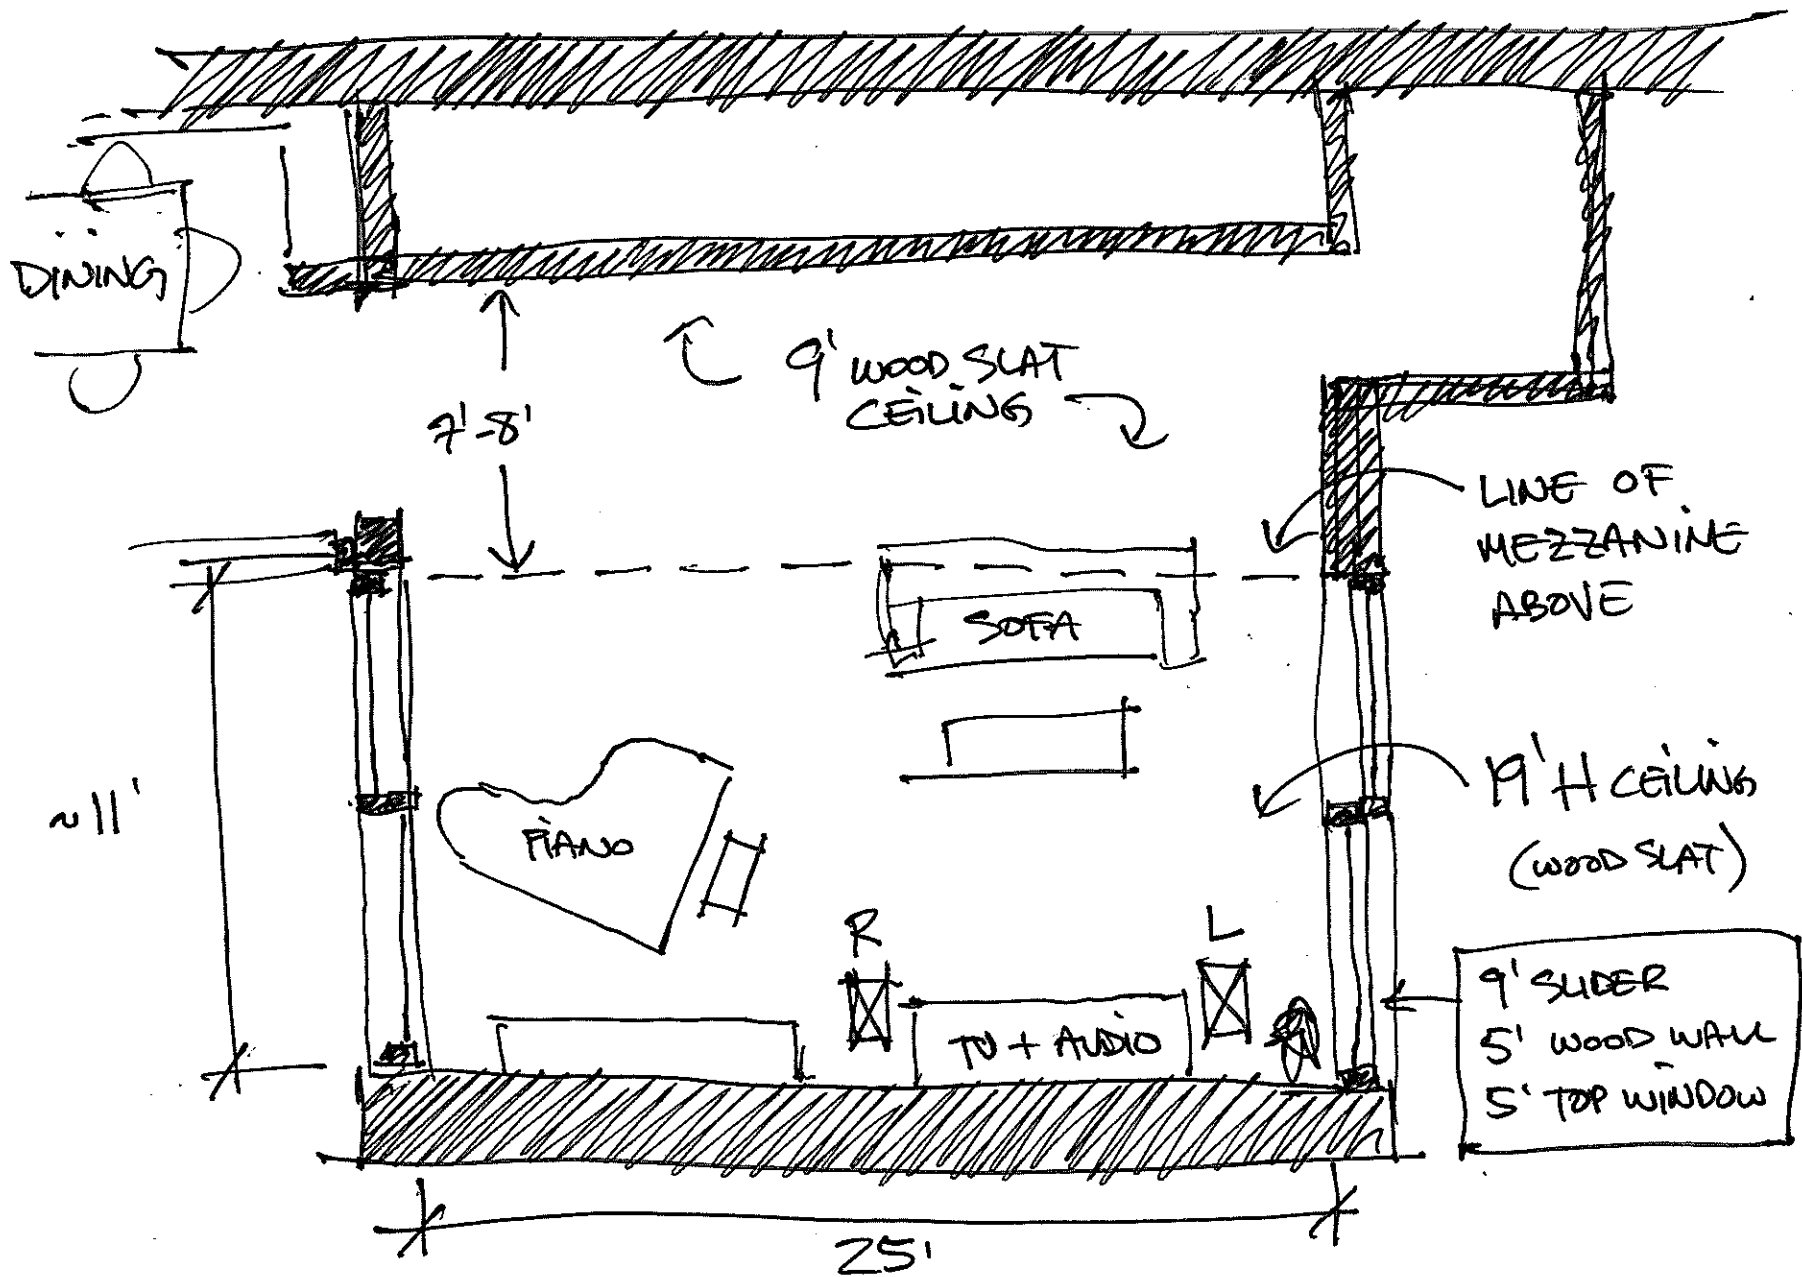 DINING
9' WOOD SLAT
CEILING
7'-8'
LINE OF
MEZZANINE
ABOVE
SOFA
~11'
PIANO
19'H CEILING
(WOOD SLAT)
R
L
TV + AUDIO
9' SLIDER
5' WOOD WALL
5' TOP WINDOW
25'